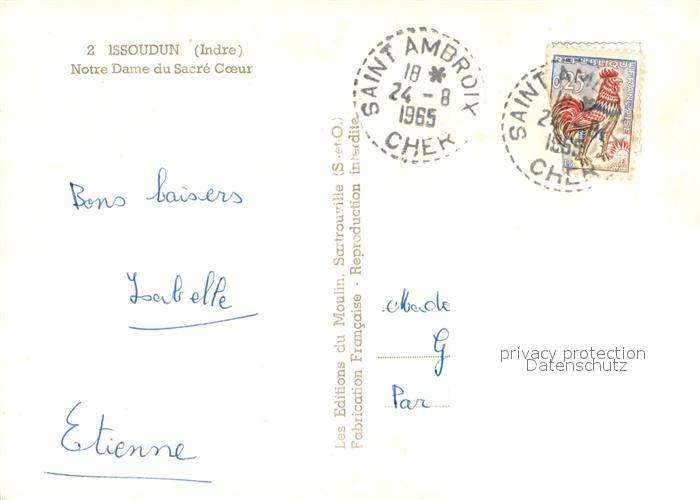 2 ISSOUDUN (Indre)
Notre Dame du Sacré Cœur
Bons baisers
Isabelle
Etienne
Les Editions du Moulin, Sartrouville (S.-et-O.)
Fabrication Française - Reproduction interdite
SAINT AMBROIX
18 *
24 - 8
1965
CHER
SAINT AM
24
1965
CHER
REPUBLIQUE FRANÇAISE
0,25
Made
G
Par
privacy protection
Datenschutz